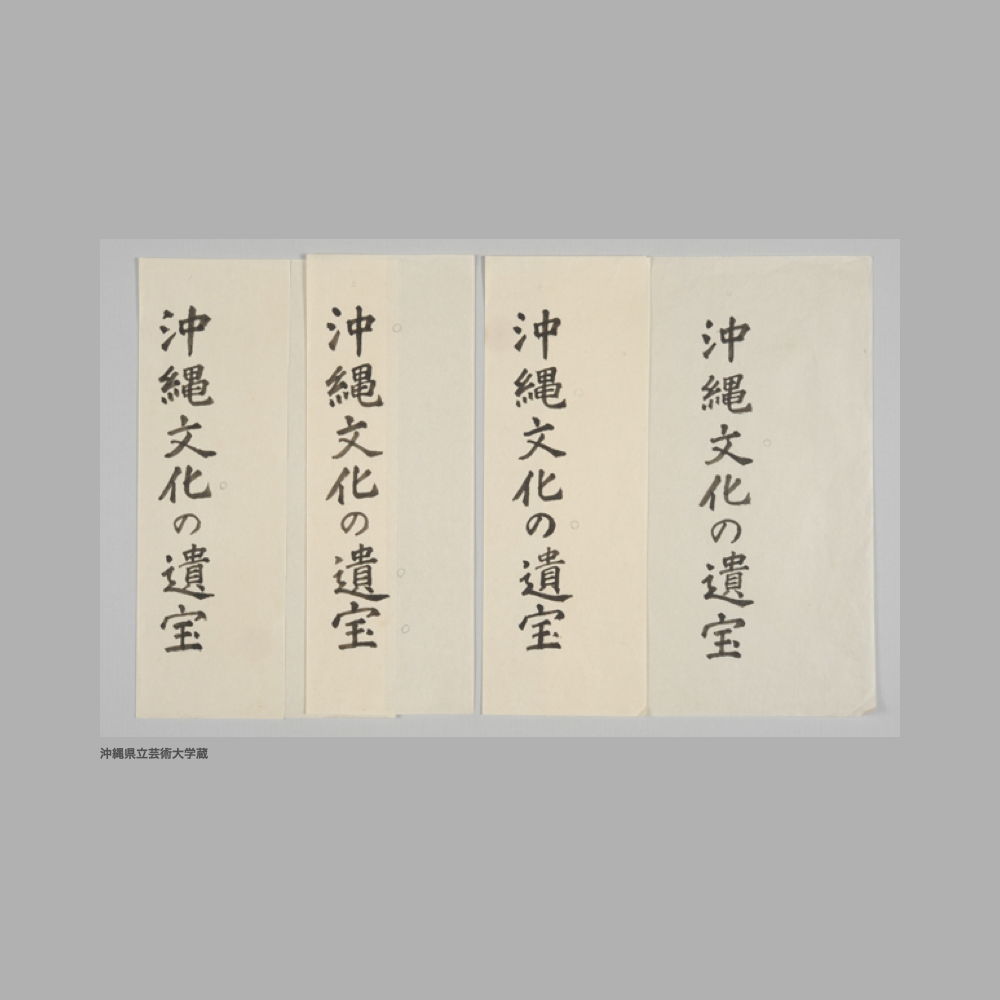 沖縄文化の遺宝
沖縄文化の遺宝
沖縄文化の遺宝
沖縄文化の遺宝
沖縄県立芸術大学蔵